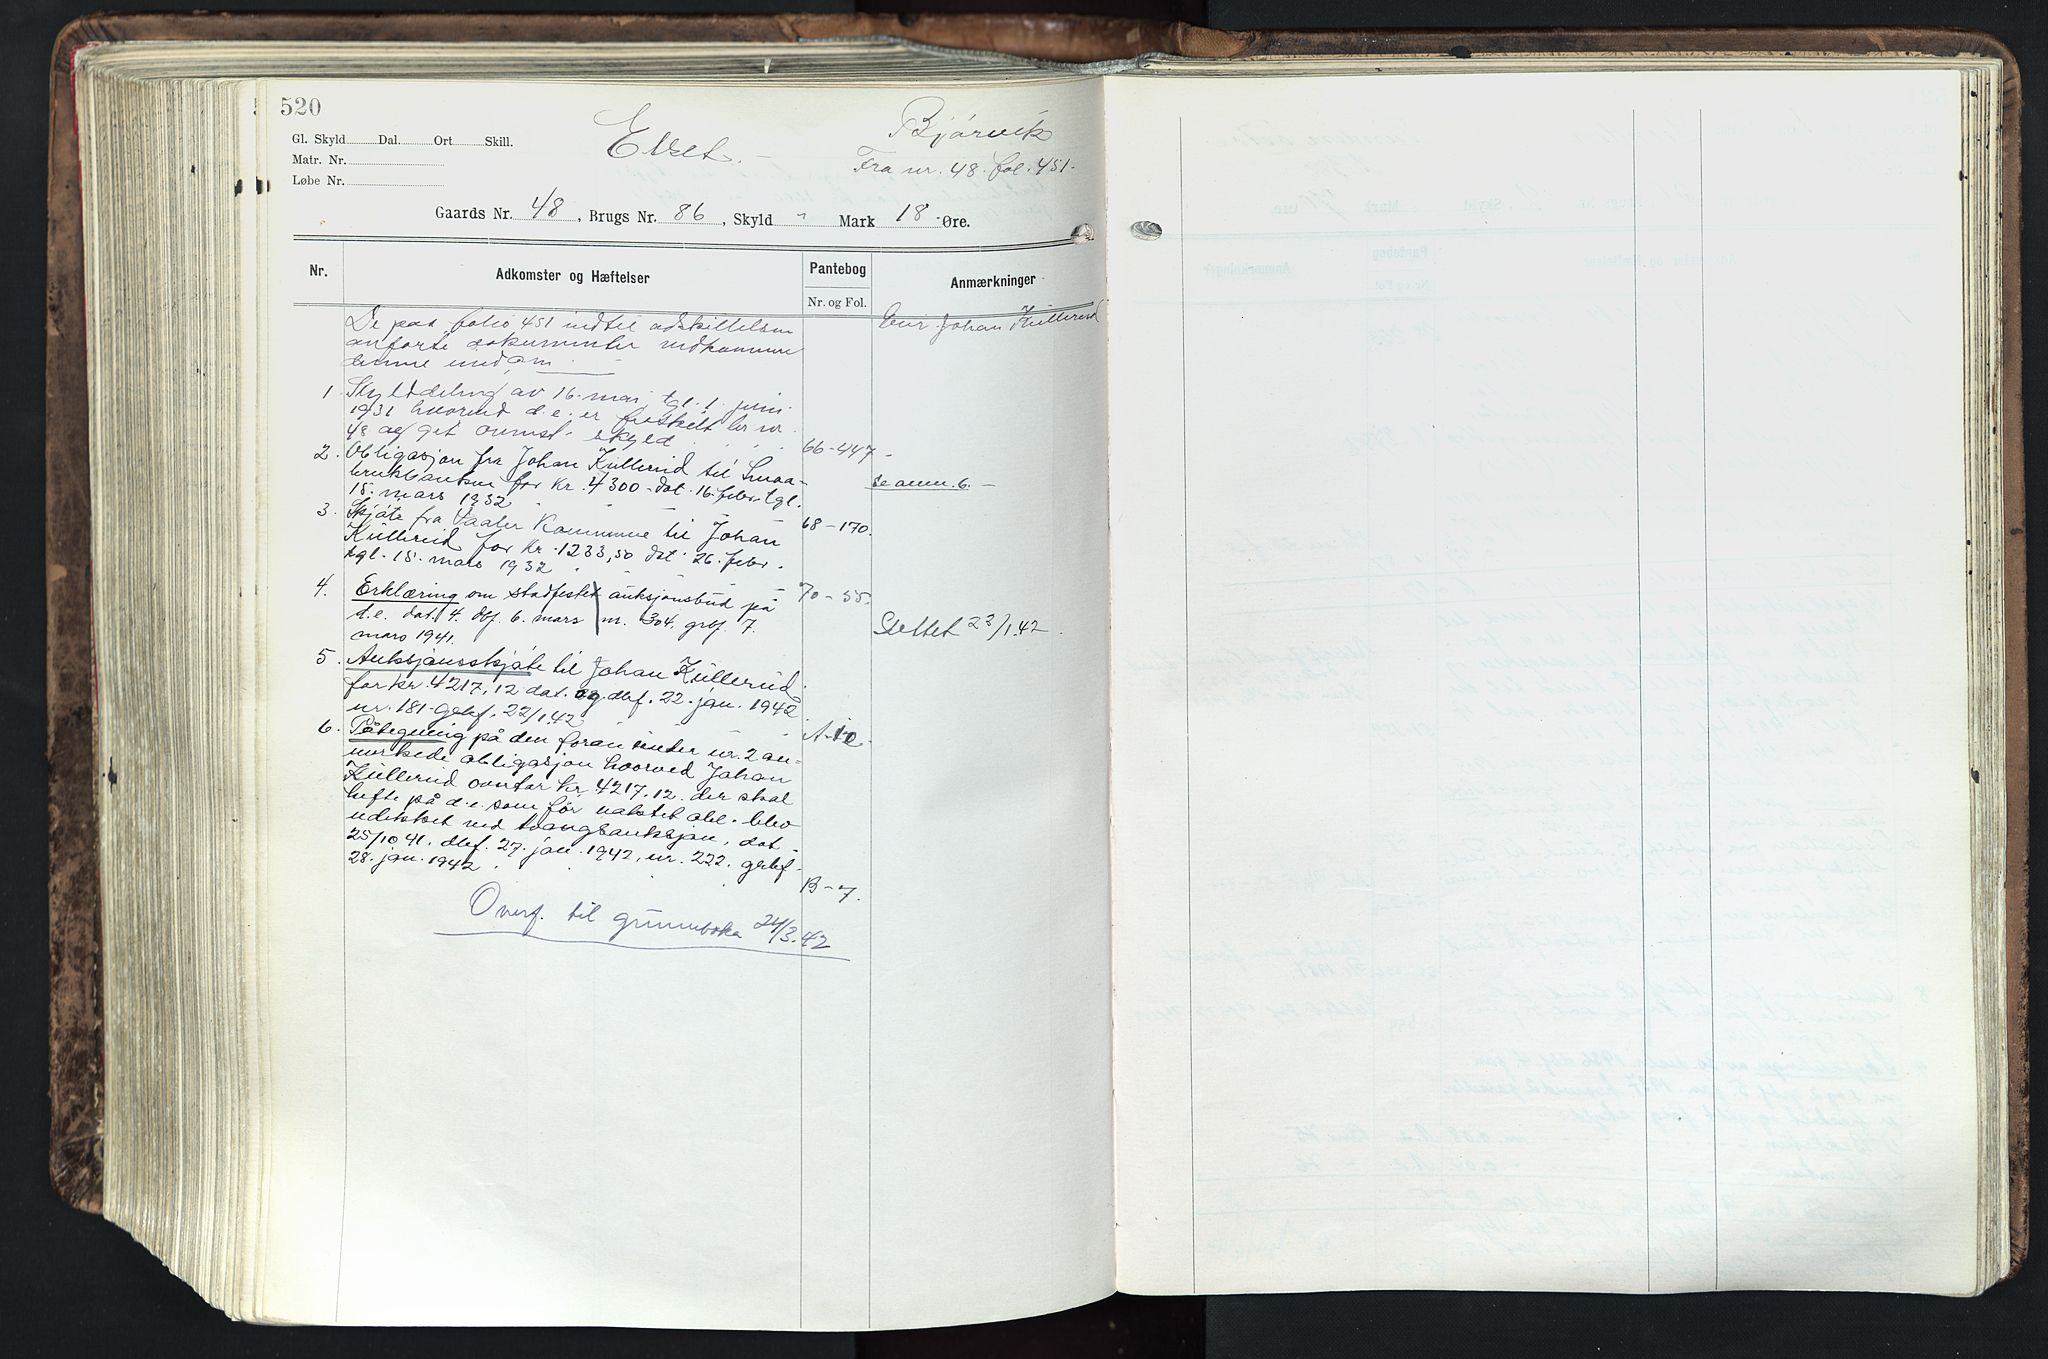 520
Gl. Skyld Dal. Ort Skill.
Matr. Nr.
Løbe Nr.
Elset. -
Bjórvik
Fra nr. 48. fol. 451.
Gaards Nr. 48, Brugs Nr. 86, Skyld " Mark 18 Øre.
Nr. Adkomster og Hæftelser Pantebog Anmærkninger
Nr. og Fol.
De paa folio 451 indtil adskillelsen
anførte dokumenter vedkommer
denne eiendom.
Eier Johan Kullerud
1. Skylddeling av 16. mai, tgl. 1. juni
1931 hvorved d.e. er fraskilt br. nr.
48 og git ovenst. skyld 66-447.
2. Obligasjon fra Johan Kullerud til Smaa-
brukbanken for kr. 4300 - dat. 16. febr. tgl.
15. mars 1932 68-170.
se anm. 6. -
3. Skjøte fra Vaaler Kommune til Johan
Kullerud for kr. 1233,50 dat. 26. febr.
tgl. 15. mars 1932 70-55.
4. Erklæring om stadfestet auksjonsbud på
d.e. dat. 4. dbf. 6. mars m. 304, grbf. 7.
mars 1941.
Slettet 22/1.42.
5. Auksjonsskjøte til Johan Kullerud
for kr. 4217,12 dat. og dbf. 22. jan. 1942
nr. 181 - grbf. 22/1.42 A-10-
6. Påtegning på den foran under nr. 2 an-
merkede obligasjon hvorved Johan
Kullerud overtar kr. 4217,12. der skal
hefte på d.e. som før nevnte obl. blev
udekket ved tvangsauksjon, dat.
25/10 41. dbf. 27. jan. 1942, nr. 222. grbf.
28. jan. 1942 B-7.
Overf. til grunnboka 24/3.42